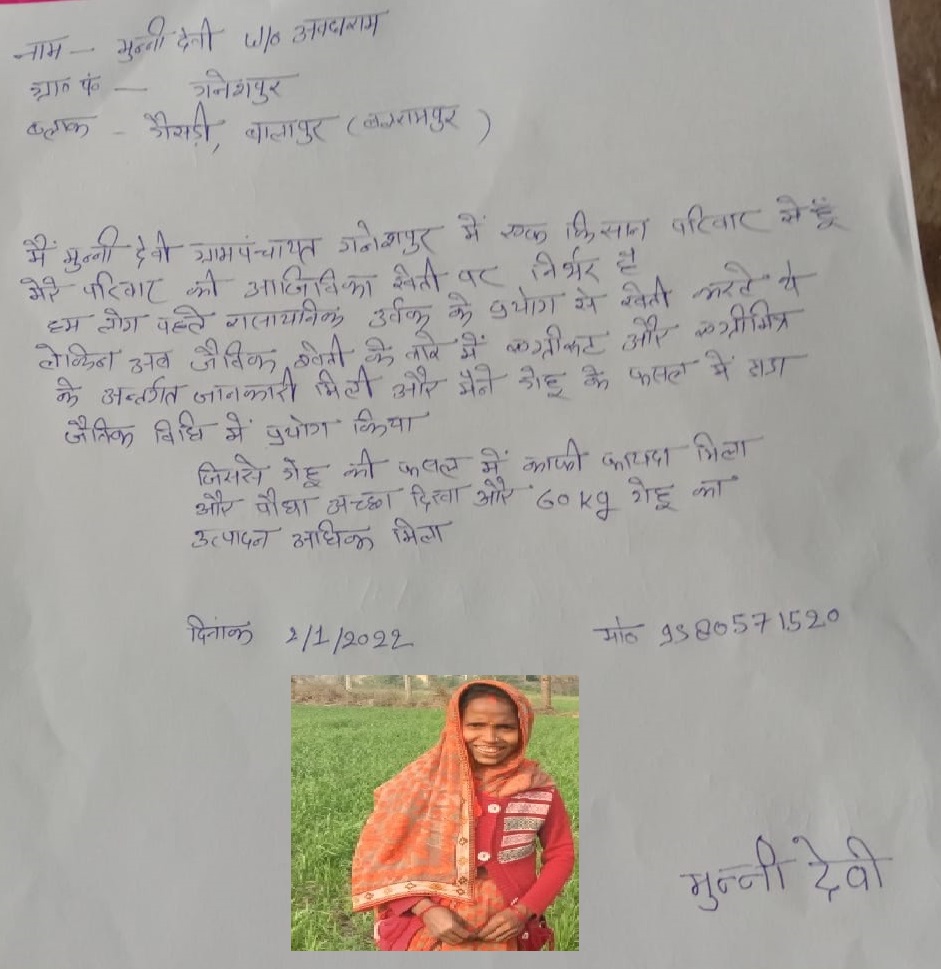 नाम — मुन्नी देवी w/o अवधाराम
ग्रा० पं० — गनेशपुर
ब्लाक - गैसड़ी, बालापुर (बलरामपुर)
मैं मुन्नी देवी ग्रामपंचायत गनेशपुर में एक किसान परिवार से हूँ
मेरे परिवार की आजिविका खेती पर निर्भर है
हम लोग पहले रासायनिक उर्वक के प्रयोग से खेती करते थे
लेकिन अब जैविक खेती के बारे में और
के अन्तर्गत जानकारी मिली और मैने गेहू के फसल में
जैविक विधि में प्रयोग किया
जिससे गेहू की फसल में काफी फायदा मिला
और पौधा अच्छा दिखा और 60 kg गेहू का
उत्पादन अधिक मिला
दिनांक 2/1/2022
मो० 9580571520
मुन्नी देवी